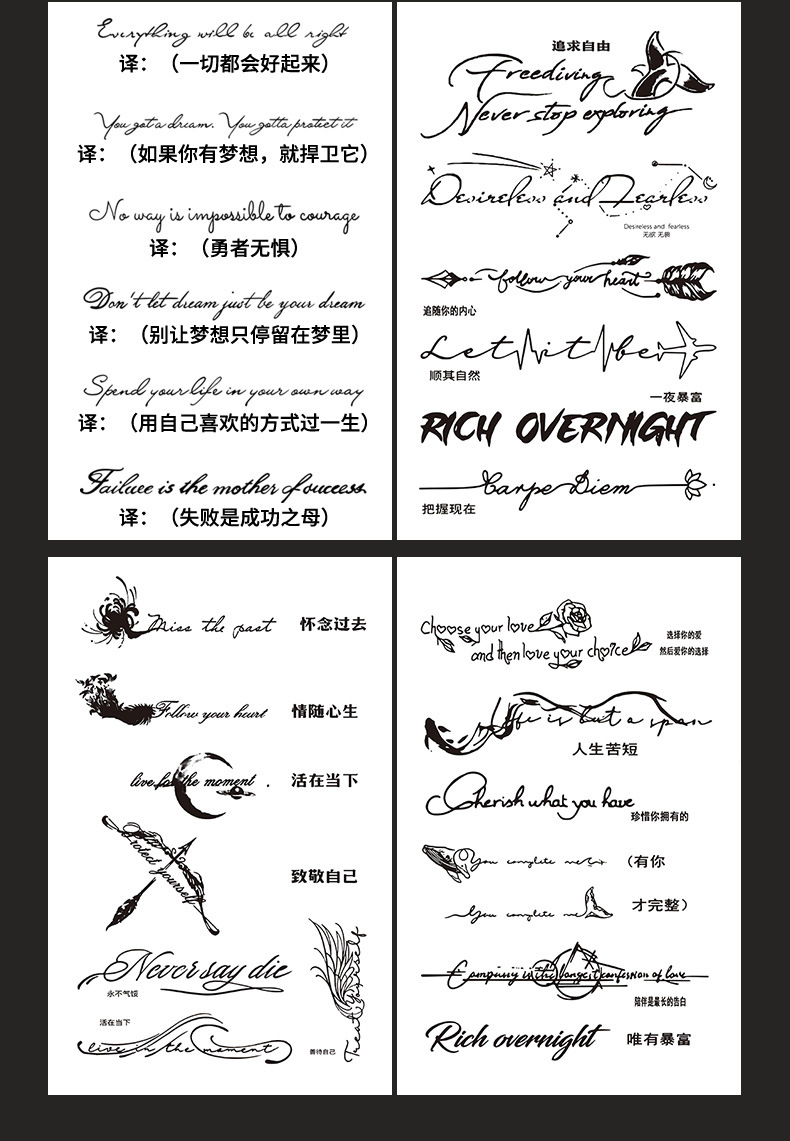 Everything will be all right
译：（一切都会好起来）
You got a dream. You gotta protect it
译：（如果你有梦想，就捍卫它）
No way is impossible to courage
译：（勇者无惧）
Don't let dream just be your dream
译：（别让梦想只停留在梦里）
Spend your life in your own way
译：（用自己喜欢的方式过一生）
Failure is the mother of success
译：（失败是成功之母）
追求自由
Freediving
Never stop exploring
Desireless and Fearless
Desireless and fearless
无欲 无畏
follow your heart
追随你的内心
Let it be
顺其自然
一夜暴富
RICH OVERNIGHT
Carpe Diem
把握现在
Miss the past 怀念过去
Follow your heart 情随心生
live for the moment . 活在当下
protect yourself
致敬自己
Never say die
永不气馁
活在当下
live in the moment
Treat yourself
善待自己
Choose your love
and then love your choice
选择你的爱
然后爱你的选择
Life is but a span
人生苦短
Cherish what you have
珍惜你拥有的
You complete me （有你
You complete me 才完整）
Company is the longest confession of love
陪伴是最长的告白
Rich overnight 唯有暴富